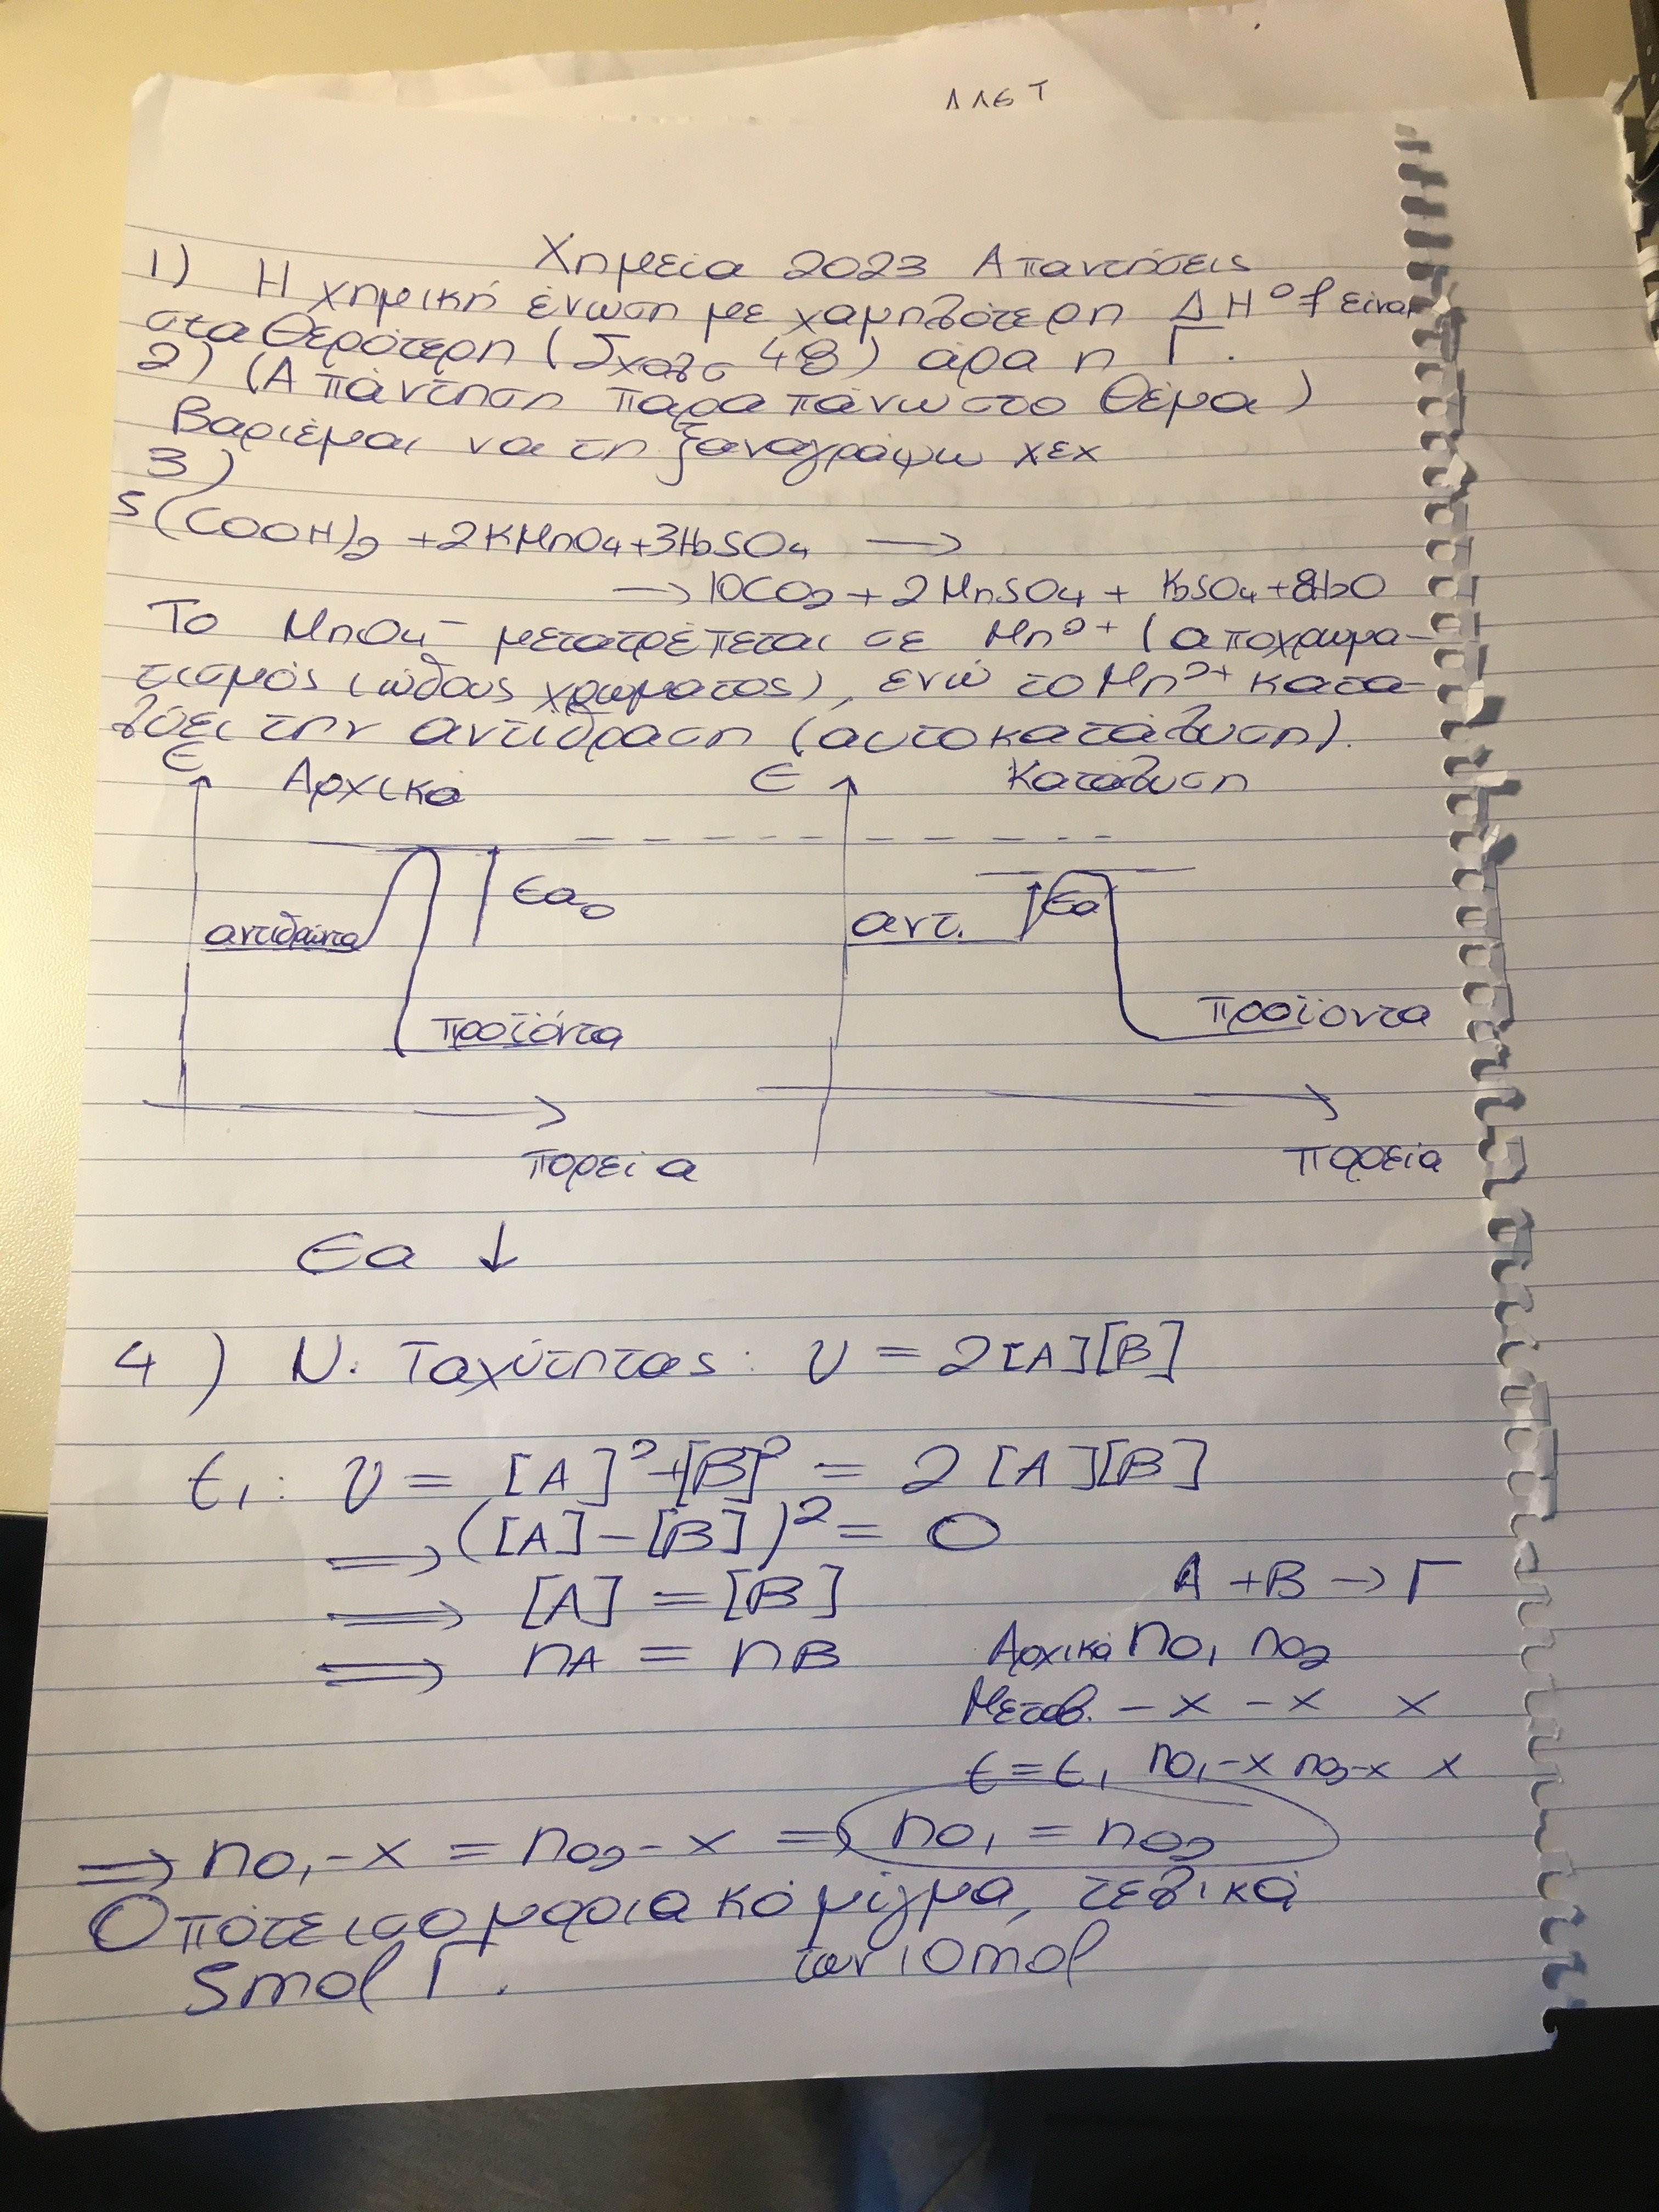 Χημεία 2023 Απαντήσεις
1) Η χημική ένωση με χαμηλότερη ΔH°f είναι
σταθερότερη (Σχολ. 48) άρα η Γ.
2) (Απάντηση παραπάνω στο θέμα)
Βαριέμαι να τη ξαναγράψω χεχ
3)
5(COOH)₂ + 2KMnO₄ + 3H₂SO₄ →
→ 10CO₂ + 2MnSO₄ + K₂SO₄ + 8H₂O
Το MnO₄⁻ μετατρέπεται σε Mn²⁺ (αποχρωμα-
τισμός ιώδους χρώματος), ενώ το Mn²⁺ κατα-
λύει την αντίδραση (αυτοκατάλυση).
E Αρχικά E Κατάλυση
Ea₀ Ea
αντιδρώντα αντ.
προϊόντα προϊοντα
πορεία πορεία
Ea ↓
4) Ν. Ταχύτητας: υ = 2[A][B]
t₁: υ = [A]²+[B]² = 2[A][B]
⇒ ([A]-[B])² = 0
⇒ [A] = [B] A + B → Γ
⇒ nA = nB Αρχικά n₀₁ n₀₂
Μεταβ. -x -x x
t=t₁ n₀₁-x n₀₂-x x
⇒ n₀₁-x = n₀₂-x ⇒ n₀₁ = n₀₂
Οπότε ισομοριακό μίγμα, τελικά
5mol Γ. των 10mol